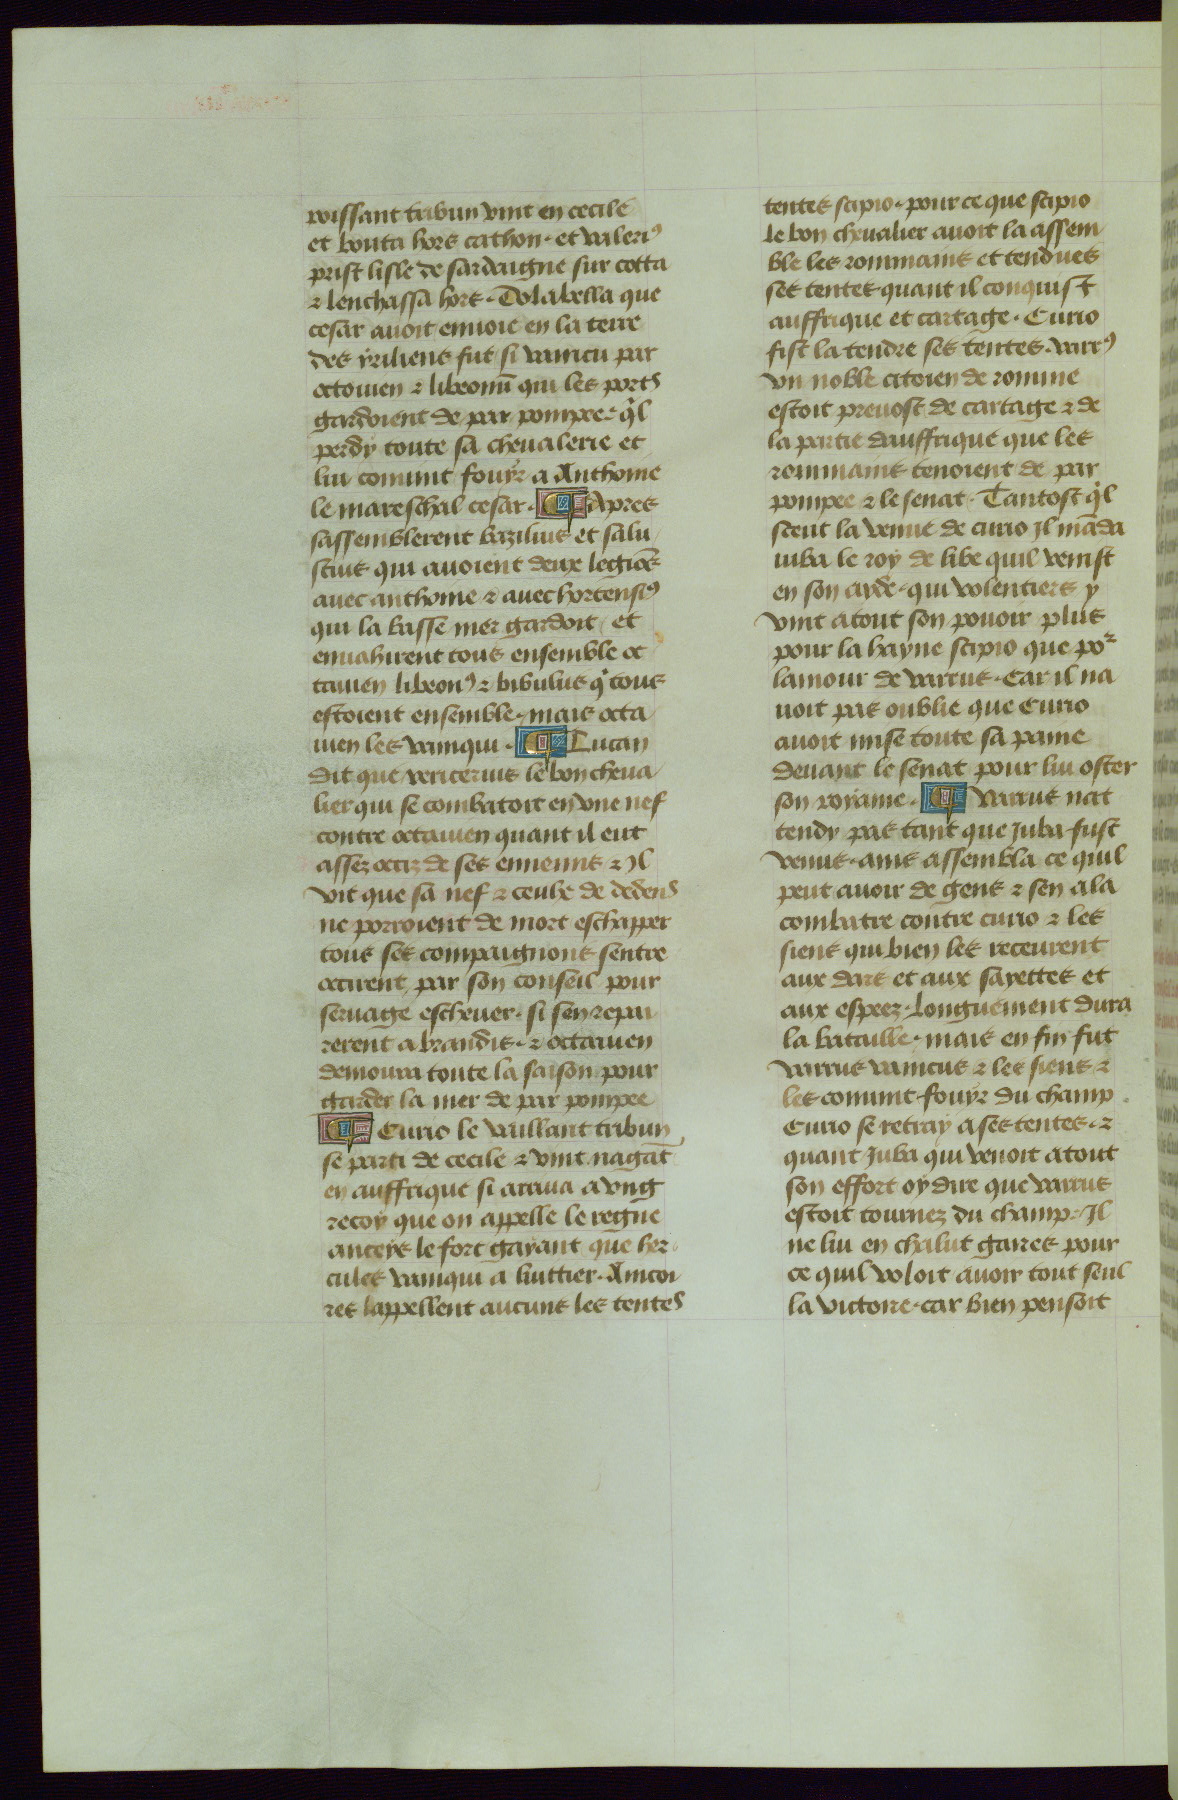 poissant tribun vint en cecile
et bouta hors cathon · et valeri⁹
prist lisle de sardaigne sur cotta
⁊ lenchassa hors · Dolabella que
cesar auoit enuoie en la terre
des yriliens fut si vaincu par
octouien ⁊ libronū qui les ports
gardoient de par pompee · q̄l
perdy toute sa cheualerie et
lui conuint fouyr a Anthoine
le mareschal cesar · Apres
sassemblerent bazilius et salu
stius qui auoient deux legiōs
auec anthoine ⁊ auec hortensi⁹
qui la basse mer gardoit / et
enuahirent tous ensemble oc
tauien libron⁹ ⁊ bibulus q̄ tous
estoient ensemble · mais octa
uien les vainqui · Lucan
dit que vertterius le bon cheua
lier qui se combatoit en vne nef
contre octauien quant il eut
assez occiz de ses ennemis ⁊ Il
vit que sa nef ⁊ ceulx de dedens
ne porroient de mort eschapper
tous ses compaignons sentre
occirent par son conseil pour
seruage escheuer · si sen repai
rerent a brandis · ⁊ octauien
demoura toute la saison pour
garder la mer de par pompee
Curio le vaillant tribun
se parti de cecile ⁊ vint nagāt
en auffrique si arriua a vng
recoy que on appelle le regne
anteys le fort gayant que her
cules vainqui a luittier · Aincoi
res lappellent aucuns les tentes
tentes scipio · pour ce que scipio
le bon cheualier auoit la assem
ble les rommains et tendues
ses tentes quant il conquist
auffrique et cartage · Curio
fist la tendre ses tentes · varr⁹
vn noble citoien de romme
estoit preuost de cartage ⁊ de
la partie dauffrique que les
rommains tenoient de par
pompee ⁊ le senat · Tantost q̄l
sceut la venue de curio Il māda
iuba le roy de libe quil venist
en son ayde · qui volentiers y
vint atout son pouoir plus
pour la hayne scipio que poʳ
lamour de varrus · Car il na
uoit pas oublie que Curio
auoit mise toute sa paine
deuant le senat pour lui oster
son royame · Varrus nat
tendy pas tant que Juba fust
venus · ains assembla ce quil
peut auoir de gens ⁊ sen ala
combatre contre curio ⁊ les
siens qui bien les receurent
aux dars et aux sayettes et
aux espees · Longuement dura
la bataille · mais en fin fut
varrus vaincus ⁊ les siens ⁊
les conuint fouyr du champ ·
Curio se retray a ses tentes · ⁊
quant Juba qui venoit atout
son effort oy dire que varrus
estoit tournez du champ · Il
ne lui en chalut gaires pour
ce quil voloit auoir tout seul
la victoire · car bien pensoit